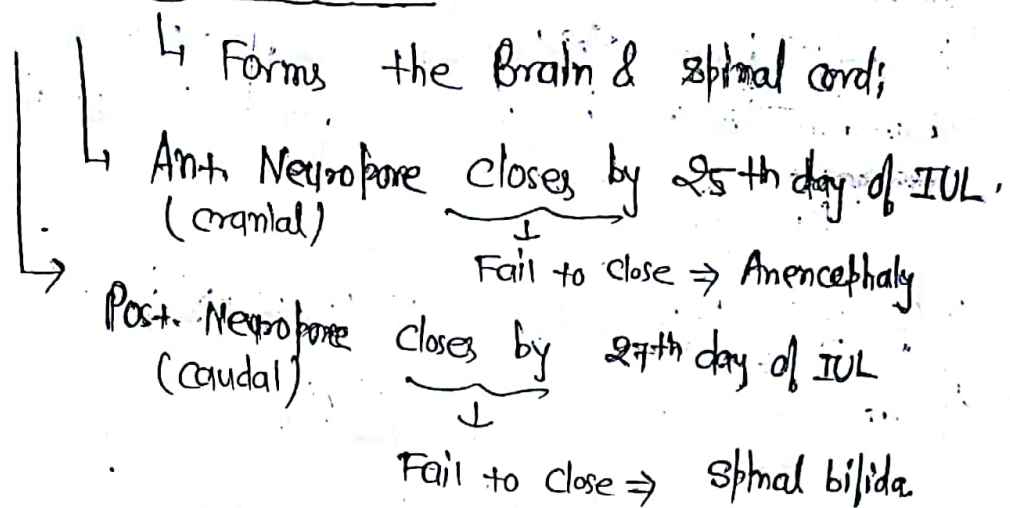 ↳ Forms the Brain & spinal cord;
↳ Ant. Neuropore closes by 25th day of IUL.
(cranial)
↓
Fail to close ⇒ Anencephaly
→ Post. Neuropore closes by 27th day of IUL
(caudal)
↓
Fail to close ⇒ Spinal bifida